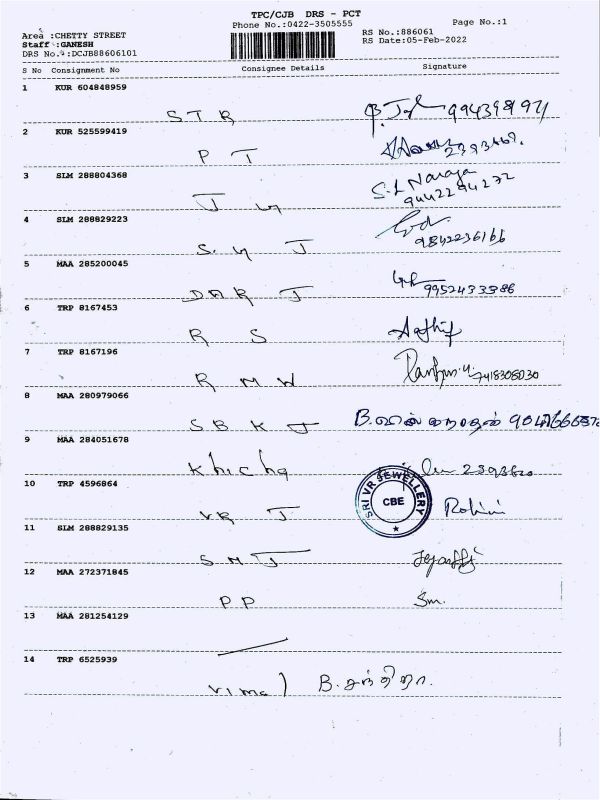 TPC/CJB DRS - PCT
Phone No.:0422-3505555
Page No.:1
Area :CHETTY STREET
Staff :GANESH
DRS No.:DCJB88606101
RS No.:886061
RS Date:05-Feb-2022
S No Consignment No Consignee Details Signature
1 KUR 604848959
S T R
2 KUR 525599419
P T
3 SLM 288804368
S.L Naraja
9442294272
4 SLM 288829223
9842236166
S. M J
5 MAA 285200045
D A R J 9952433386
6 TRP 8167453
R S
7 TRP 8167196
R M W
8 MAA 280979066
S B K J
9 MAA 284051678
Khicha
10 TRP 4596864
SRI VR JEWELLERY
CBE
VR J Rohini
11 SLM 288829135
S M J
12 MAA 272371845
P P Sm.
13 MAA 281254129
14 TRP 6525939
Vimal